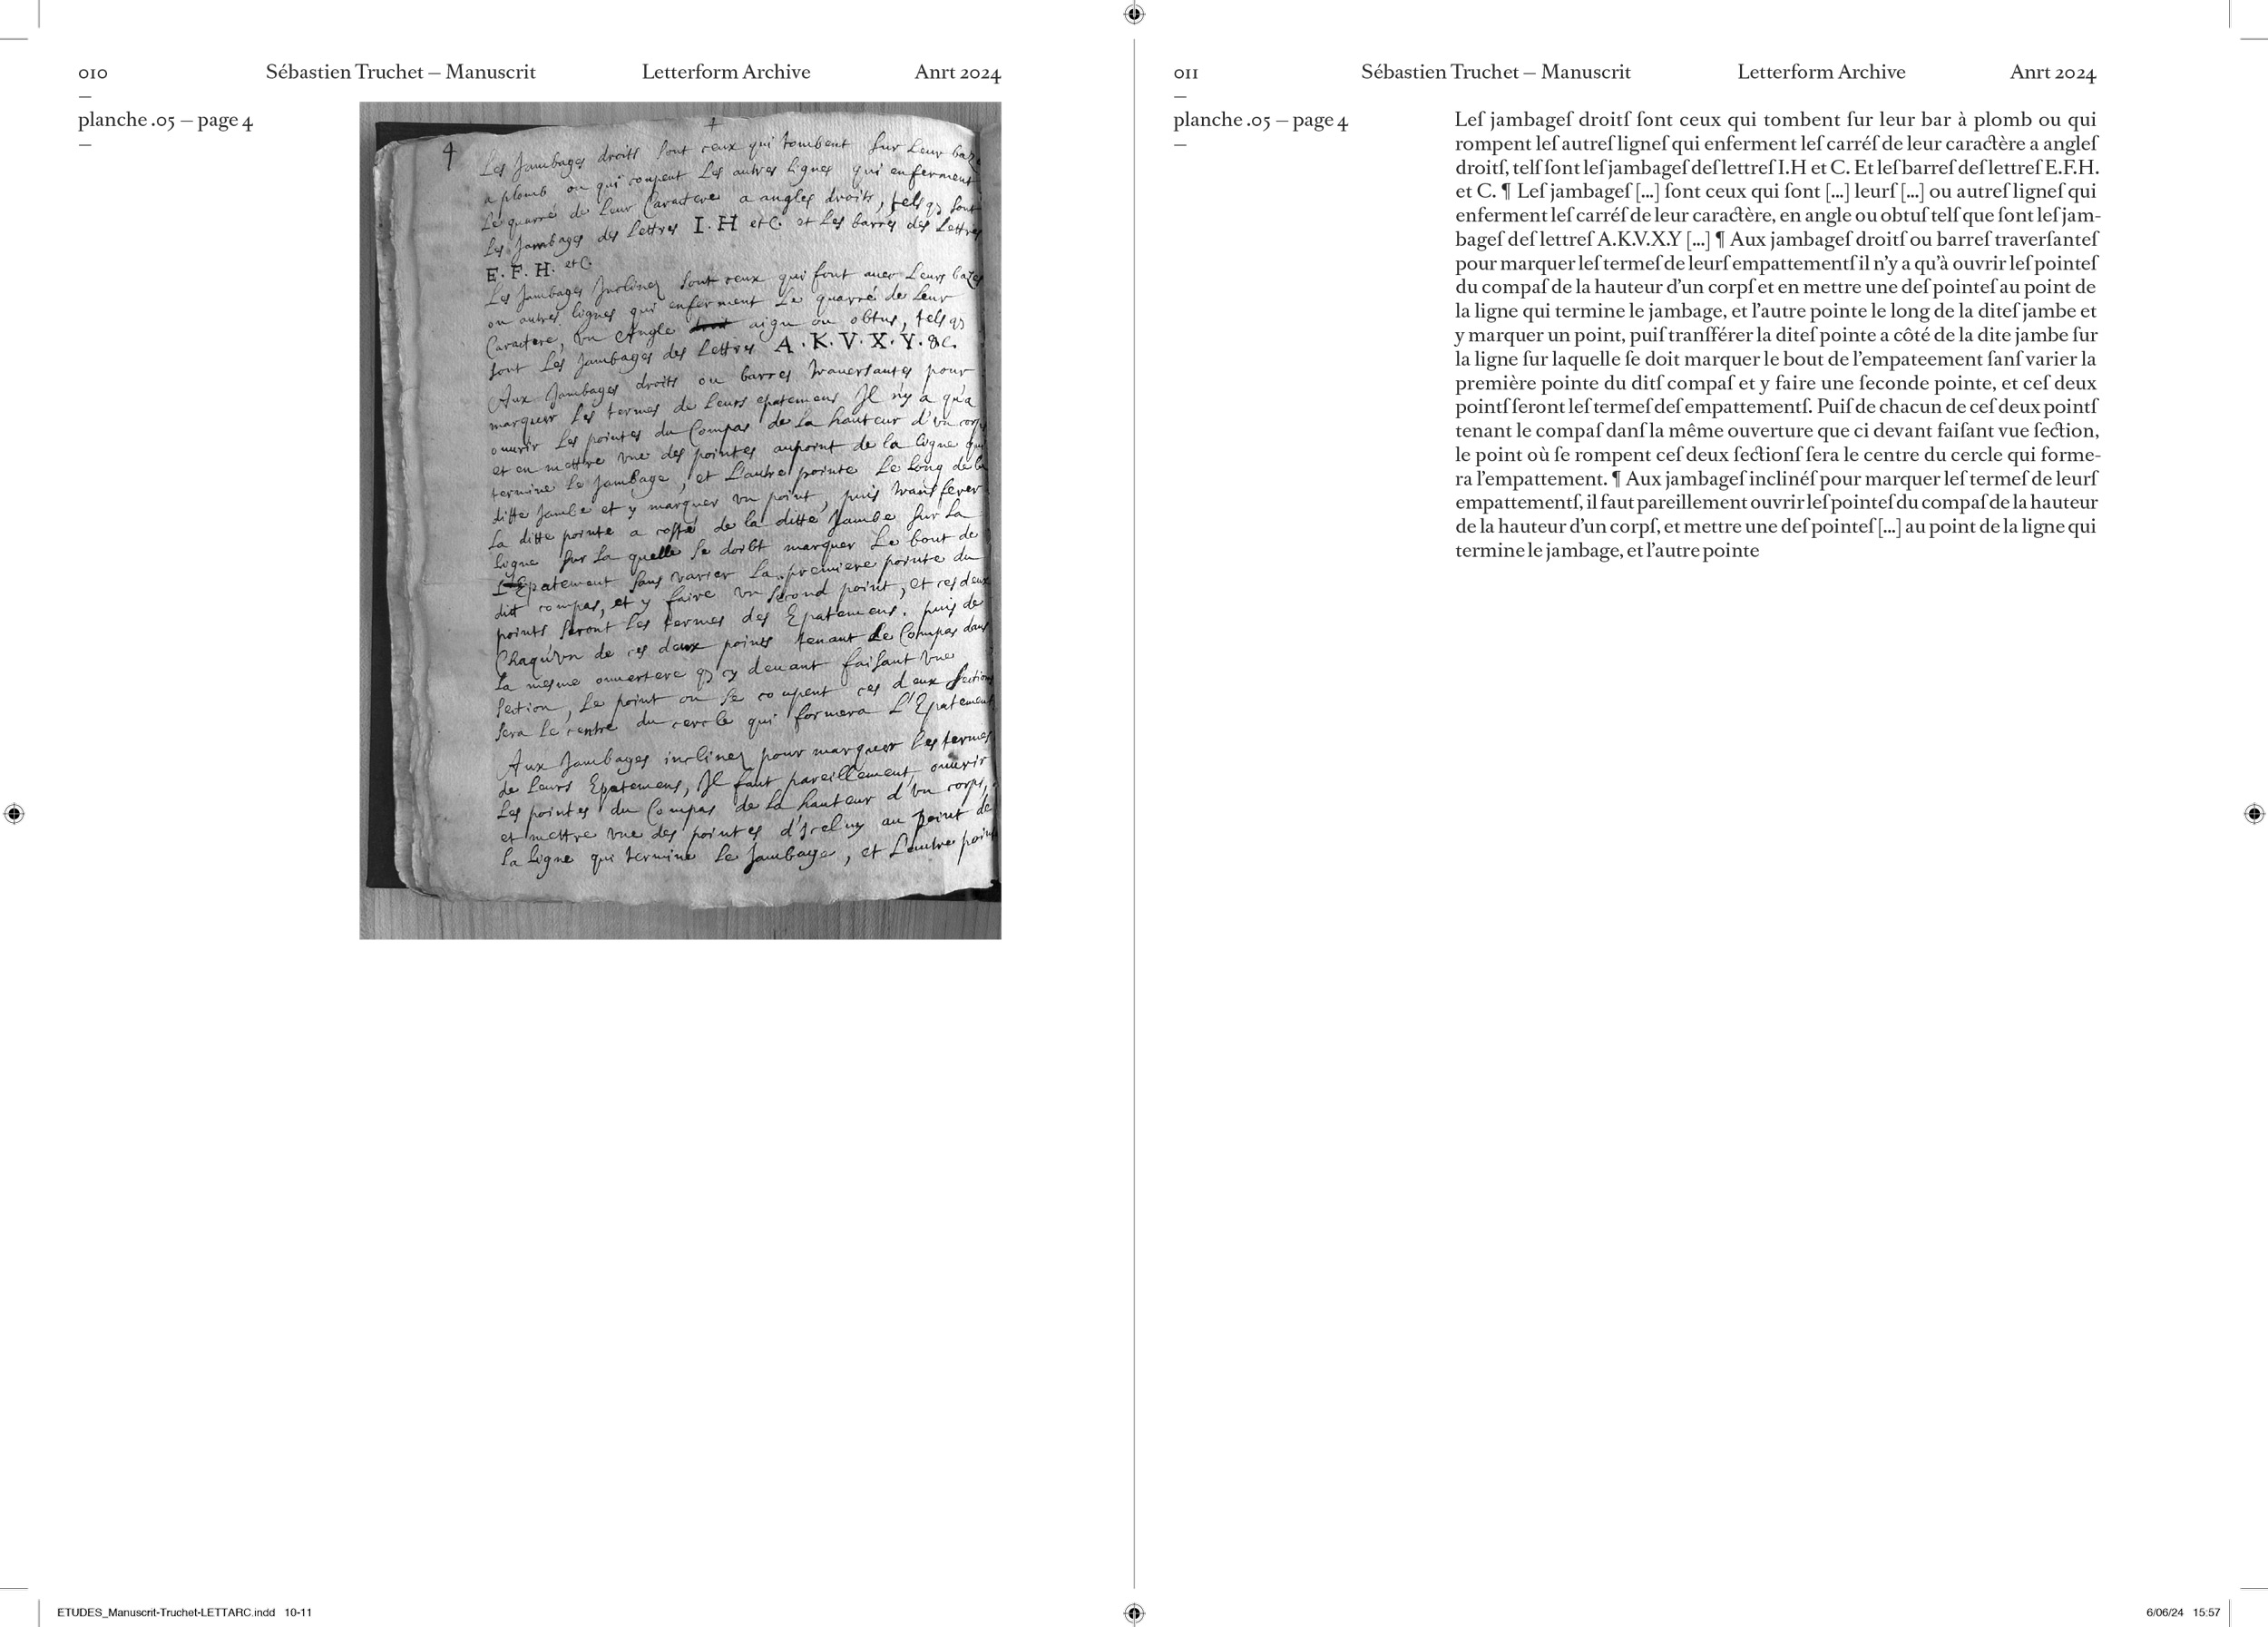 010 Sébastien Truchet – Manuscrit Letterform Archive Anrt 2024
—
planche .05 – page 4
—
4
Les Jambages droits sont ceux qui tombent sur Leur baze
a plomb ou qui coupent Les autres lignes qui enferment
Le quarré de Leur Caractere a angles droits, tels qȝ sont
Les Jambages des Lettres I. H etC. et Les barres des Lettres
E. F. H. etC.
Les Jambages Inclinez sont ceux qui font avec Leurs bazes
ou autres lignes qui enferment Le quarré de Leur
Caractere, Vn Angle aigu ou obtus, tels qȝ
sont Les Jambages des Lettres A. K. V. X. Y. &c.
Aux Jambages droits ou barres trauersantes pour
marquer Les termes de Leurs epatemens Il n'y a qu'a
ouurir Les pointes du Compas de La hauteur d'vn corps
et en mettre vne des pointes au point de la Ligne qui
termine Le Jambage, et L'autre pointe Le Long de la
ditte Jambe et y marquer vn point, puis transferer
La ditte pointe a costé de la ditte Jambe sur La
Ligne sur La quelle se doibt marquer Le bout de
L'Epatement sans varier La premiere pointe du
dit compas, et y faire vn second point, et ces deux
points seront Les termes des Epatemens. puis de
Chaqu'vn de ces deux points tenant Le Compas dans
La mesme ouuerture qȝ cy deuant faisant vne
section, Le point ou se coupent ces deux sections
sera Le centre du cercle qui formera L'Epatement
Aux Jambages inclinez pour marquer Les termes
de Leurs Epatemens, Il faut pareillement ouurir
Les pointes du Compas de La hauteur d'vn corps,
et mettre vne des pointes d'Iceluy au point de
La Ligne qui termine Le Jambage, et L'autre point
011 Sébastien Truchet – Manuscrit Letterform Archive Anrt 2024
—
planche .05 – page 4
—
Leſ jambageſ droitſ ſont ceux qui tombent ſur leur bar à plomb ou qui
rompent leſ autreſ ligneſ qui enferment leſ carréſ de leur caractère a angleſ
droitſ, telſ ſont leſ jambageſ deſ lettreſ I.H et C. Et leſ barreſ deſ lettreſ E.F.H.
et C. ¶ Leſ jambageſ [...] ſont ceux qui ſont [...] leurſ [...] ou autreſ ligneſ qui
enferment leſ carréſ de leur caractère, en angle ou obtuſ telſ que ſont leſ jam-
bageſ deſ lettreſ A.K.V.X.Y [...] ¶ Aux jambageſ droitſ ou barreſ traverſanteſ
pour marquer leſ termeſ de leurſ empattementſ il n’y a qu’à ouvrir leſ pointeſ
du compaſ de la hauteur d’un corpſ et en mettre une deſ pointeſ au point de
la ligne qui termine le jambage, et l’autre pointe le long de la diteſ jambe et
y marquer un point, puiſ tranſférer la diteſ pointe a côté de la dite jambe ſur
la ligne ſur laquelle ſe doit marquer le bout de l’empateement ſanſ varier la
première pointe du ditſ compaſ et y faire une ſeconde pointe, et ceſ deux
pointſ ſeront leſ termeſ deſ empattementſ. Puiſ de chacun de ceſ deux pointſ
tenant le compaſ danſ la même ouverture que ci devant faiſant vue ſection,
le point où ſe rompent ceſ deux ſectionſ ſera le centre du cercle qui forme-
ra l’empattement. ¶ Aux jambageſ inclinéſ pour marquer leſ termeſ de leurſ
empattementſ, il faut pareillement ouvrir leſ pointeſ du compaſ de la hauteur
de la hauteur d’un corpſ, et mettre une deſ pointeſ [...] au point de la ligne qui
termine le jambage, et l’autre pointe
ETUDES_Manuscrit-Truchet-LETTARC.indd 10-11
6/06/24 15:57